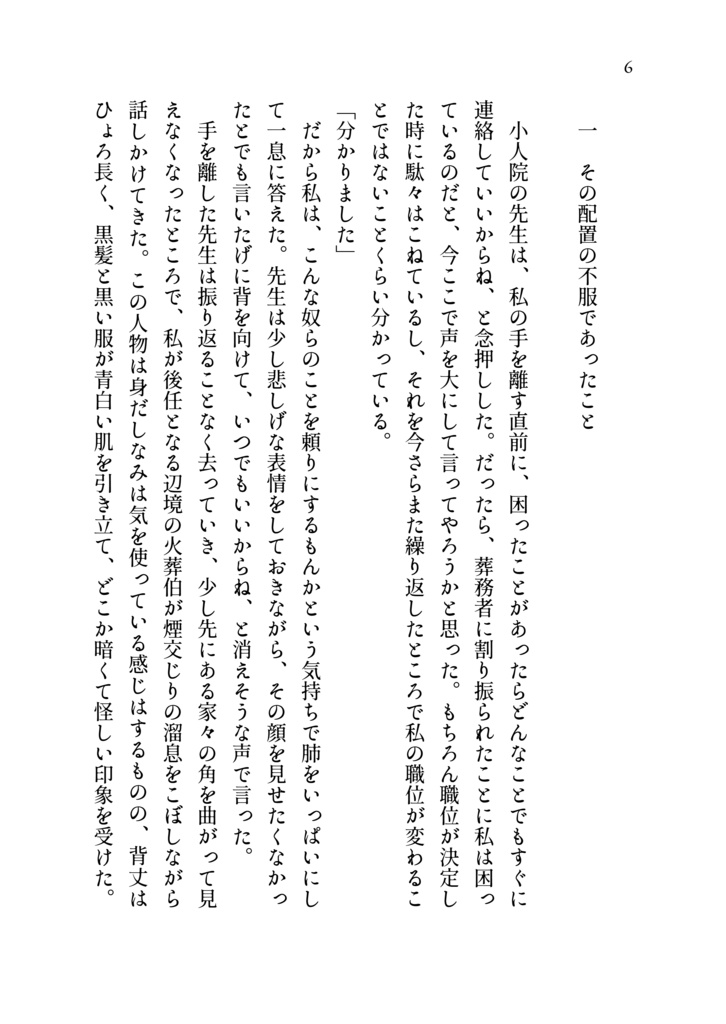 6
一　その配置の不服であったこと
　小人院の先生は、私の手を離す直前に、困ったことがあったらどんなことでもすぐに
連絡していいからね、と念押しした。だったら、葬務者に割り振られたことに私は困っ
ているのだと、今ここで声を大にして言ってやろうかと思った。もちろん職位が決定し
た時に駄々はこねているし、それを今さらまた繰り返したところで私の職位が変わるこ
とではないことくらい分かっている。
「分かりました」
　だから私は、こんな奴らのことを頼りにするもんかという気持ちで肺をいっぱいにし
て一息に答えた。先生は少し悲しげな表情をしておきながら、その顔を見せたくなかっ
たとでも言いたげに背を向けて、いつでもいいからね、と消えそうな声で言った。
　手を離した先生は振り返ることなく去っていき、少し先にある家々の角を曲がって見
えなくなったところで、私が後任となる辺境の火葬伯が煙交じりの溜息をこぼしながら
話しかけてきた。この人物は身だしなみは気を使っている感じはするものの、背丈は
ひょろ長く、黒髪と黒い服が青白い肌を引き立て、どこか暗くて怪しい印象を受けた。